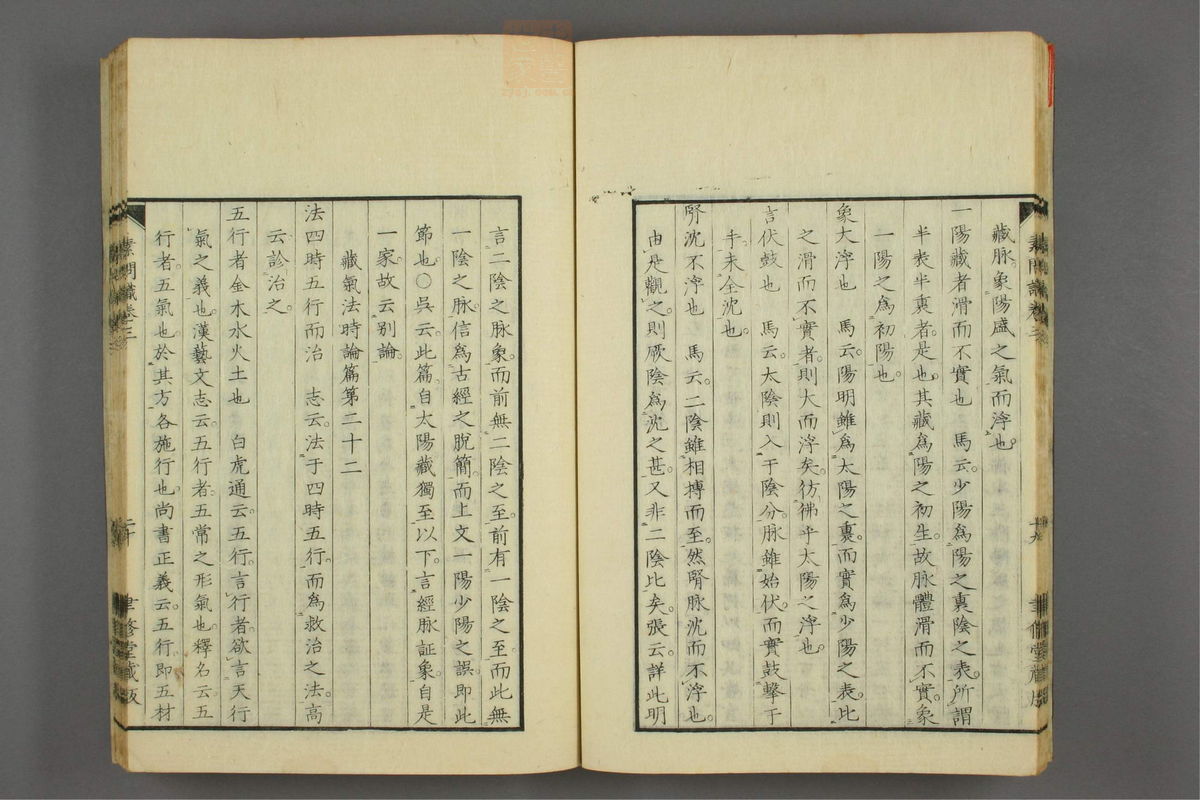 藏脉象陽盛之氣而浮也
一陽藏者滑而不實也　馬云少陽為陽之裏陰之表所謂
半表半裏者是也其藏為陽之初生故脉體滑而不實象
一陽之為初陽也
象大浮也　馬云陽明雖為太陽之裏而實為少陽之表比
之滑而不實者則大而浮矣彷彿乎太陽之浮也
言伏鼓也　馬云太陰則入于陰分脉雖始伏而實鼓擊于
手未全沈也
腎沈不浮也　馬云二陰雖相搏而至然腎脉沈而不浮也
由是觀之則厥陰為沈之甚又非二陰比矣張云詳此明
言二陰之脉象而前無二陰之至前有一陰之至而此無
一陰之脉信為古經之脫簡而上文一陽少陽之誤即此
節也○吳云此篇自太陽藏獨至以下言經脉証象自是
一家故云別論
藏氣法時論篇第二十二
法四時五行而治　志云法于四時五行而為救治之法高
云診治之
五行者金木水火土也　白虎通云五行言行者欲言天行
氣之義也漢藝文志云五行者五常之形氣也釋名云五
行者五氣也於其方各施行也尚書正義云五行即五材
素問識卷三
二十
聿修堂藏版